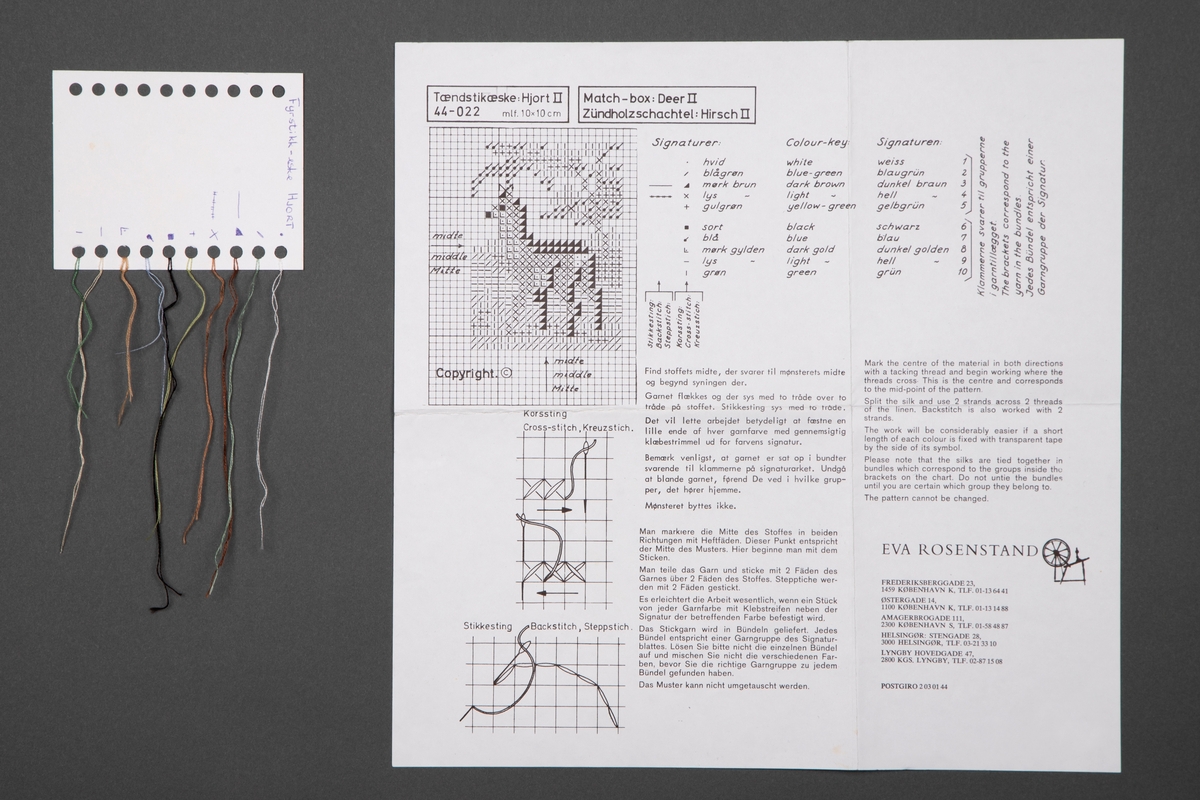 Fyrstikk-eske HJORT
Tændstikæske: Hjort II
44-022 mlf. 10×10 cm
Match-box: Deer II
Zündholzschachtel: Hirsch II
midte
middle
Mitte
midte
middle
Mitte
Copyright. ©
Signaturer: Colour-key: Signaturen:
· hvid white weiss 1
blågrøn blue-green blaugrün 2
mørk brun dark brown dunkel braun 3
× lys " light " hell " 4
+ gulgrøn yellow-green gelbgrün 5
■ sort black schwarz 6
blå blue blau 7
mørk gylden dark gold dunkel golden 8
– lys " light " hell " 9
ı grøn green grün 10
Stikkesting:
Backstitch:
Steppstich:
Korssting:
Cross-stitch:
Kreuzstich:
Klammerne svarer til grupperne
i garntillægget.
The brackets correspond to the
yarn in the bundles.
Jedes Bündel entspricht einer
Garngruppe der Signatur.
Find stoffets midte, der svarer til mønsterets midte
og begynd syningen der.
Garnet flækkes og der sys med to tråde over to
tråde på stoffet. Stikkesting sys med to tråde.
Det vil lette arbejdet betydeligt at fæstne en
lille ende af hver garnfarve med gennemsigtig
klæbestrimmel ud for farvens signatur.
Bemærk venligst, at garnet er sat op i bundter
svarende til klammerne på signaturarket. Undgå
at blande garnet, førend De ved i hvilke grup-
per, det hører hjemme.
Mønsteret byttes ikke.
Korssting
Cross-stitch, Kreuzstich.
Stikkesting Backstitch, Steppstich.
Man markiere die Mitte des Stoffes in beiden
Richtungen mit Heftfäden. Dieser Punkt entspricht
der Mitte des Musters. Hier beginne man mit dem
Sticken.
Man teile das Garn und sticke mit 2 Fäden des
Garnes über 2 Fäden des Stoffes. Steppstiche wer-
den mit 2 Fäden gestickt.
Es erleichtert die Arbeit wesentlich, wenn ein Stück
von jeder Garnfarbe mit Klebstreifen neben der
Signatur der betreffenden Farbe befestigt wird.
Das Stickgarn wird in Bündeln geliefert. Jedes
Bündel entspricht einer Garngruppe des Signatur-
blattes. Lösen Sie bitte nicht die einzelnen Bündel
auf und mischen Sie nicht die verschiedenen Far-
ben, bevor Sie die richtige Garngruppe zu jedem
Bündel gefunden haben.
Das Muster kann nicht umgetauscht werden.
Mark the centre of the material in both directions
with a tacking thread and begin working where the
threads cross. This is the centre and corresponds
to the mid-point of the pattern.
Split the silk and use 2 strands across 2 threads
of the linen. Backstitch is also worked with 2
strands.
The work will be considerably easier if a short
length of each colour is fixed with transparent tape
by the side of its symbol.
Please note that the silks are tied together in
bundles which correspond to the groups inside the
brackets on the chart. Do not untie the bundles
until you are certain which group they belong to.
The pattern cannot be changed.
EVA ROSENSTAND
FREDERIKSBERGGADE 23,
1459 KØBENHAVN K, TLF. 01-13 64 41
ØSTERGADE 14,
1100 KØBENHAVN K, TLF. 01-13 14 88
AMAGERBROGADE 111,
2300 KØBENHAVN S, TLF. 01-58 48 87
HELSINGØR: STENGADE 28,
3000 HELSINGØR, TLF. 03-21 33 10
LYNGBY HOVEDGADE 47,
2800 KGS. LYNGBY, TLF. 02-87 15 08
POSTGIRO 2 03 01 44